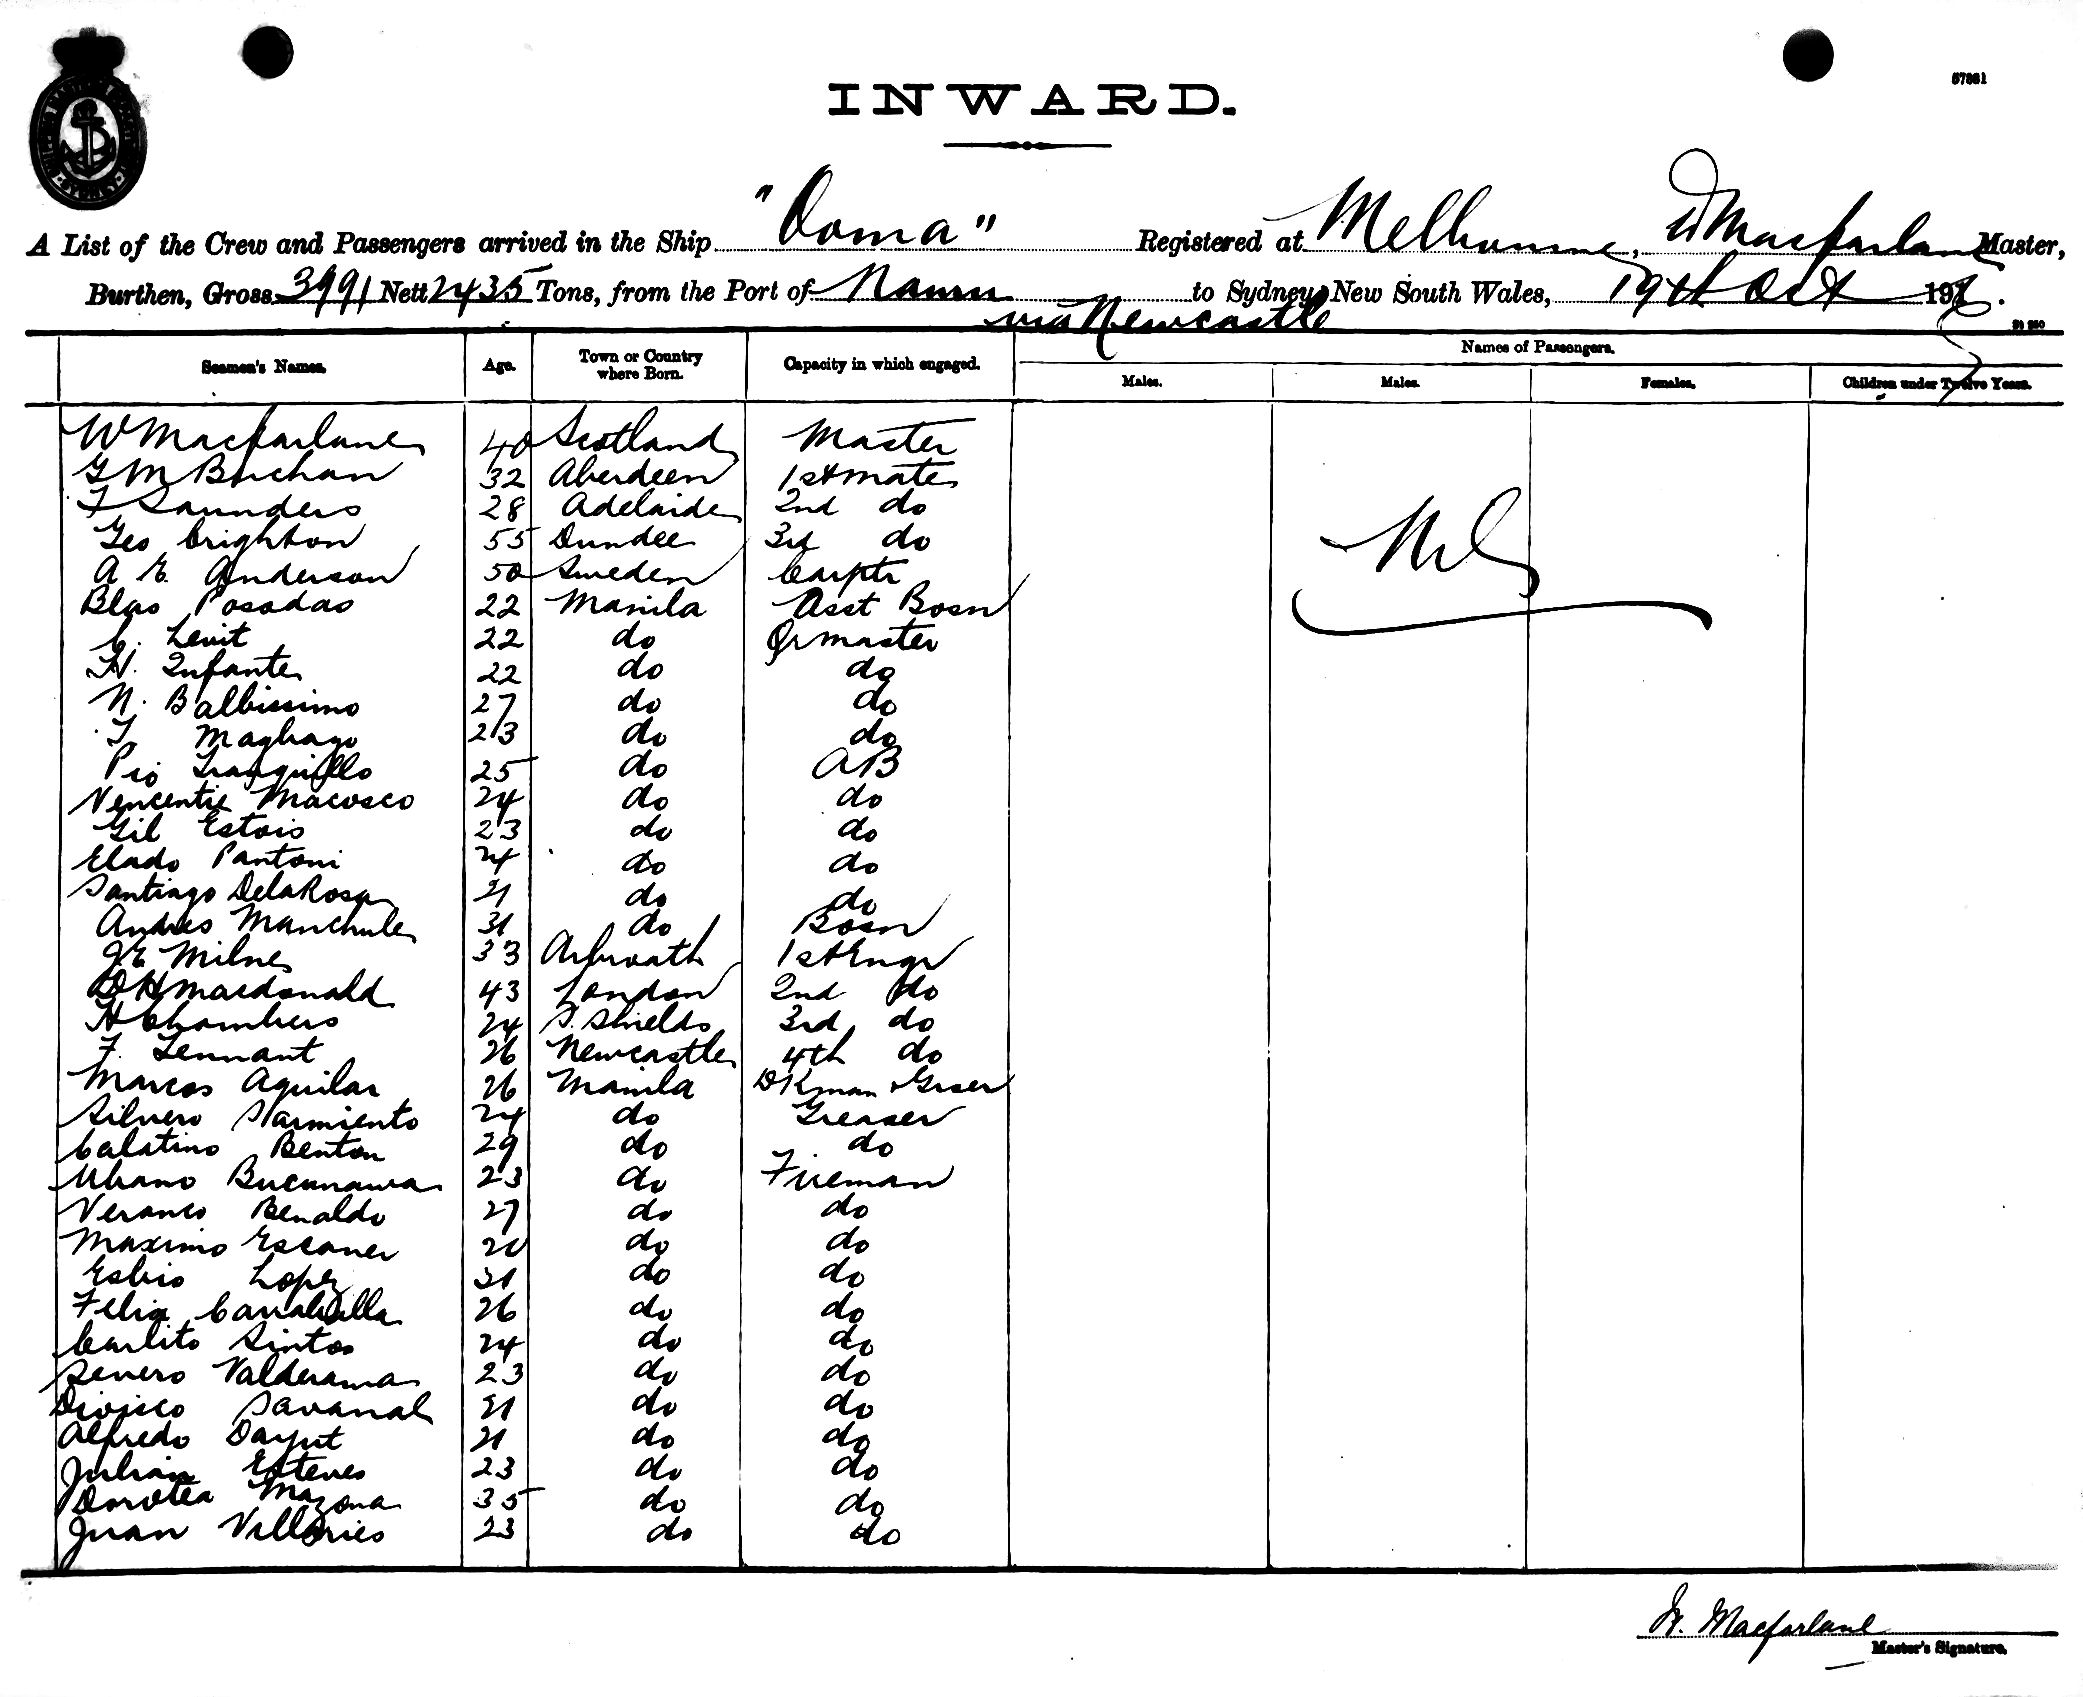 57981
INWARD.
A List of the Crew and Passengers arrived in the Ship "Ooma" Registered at Melbourne, W Macfarlane Master,
Burthen, Gross 3991 Nett 2435 Tons, from the Port of Nauru to Sydney, New South Wales, 19th Oct 191
via Newcastle
Seamen's Names. Age. Town or Country where Born. Capacity in which engaged. Names of Passengers.
Males. Males. Females. Children under Twelve Years.
W Macfarlane 40 Scotland Master
G M Buchan 32 Aberdeen 1st mate
F Saunders 28 Adelaide 2nd do
Geo Crighton 55 Dundee 3rd do
A E Anderson 50 Sweden Carptr
Blas Posadas 22 Manila Asst Bosn
C. Levit 22 do Qrmaster
H. Infante 22 do do
N. Balbissimo 27 do do
23 do do
Pio Tranquillo 25 do AB
Vencentie Macosco 24 do do
Gil Estois 23 do do
Elado Pantoni 24 do do
Santiago DelaRosa 21 do do
Andres Manchule 31 do Bosn
J E Milne 33 Arbroath 1st Engr
D H Macdonald 43 London 2nd do
H Chambers 24 S. Shields 3rd do
F. Tennant 26 Newcastle 4th do
Marcos Aguilar 26 Manila DKman & Grser
Silvero Sarmiento 24 do Greaser
Calatino Benton 29 do do
Ubano Bucunawa 23 do Fireman
Veranco Benaldo 27 do do
Maximo Escaner do do
Esbio Lopez 31 do do
Felix 26 do do
Carlito Sintos 24 do do
Severo Valderama 23 do do
Savanal 21 do do
Alfredo Dayut 21 do do
Julian Esteves 23 do do
Dorotea Mazona 35 do do
Juan 23 do do
Nil
W. Macfarlane
Master's Signature.